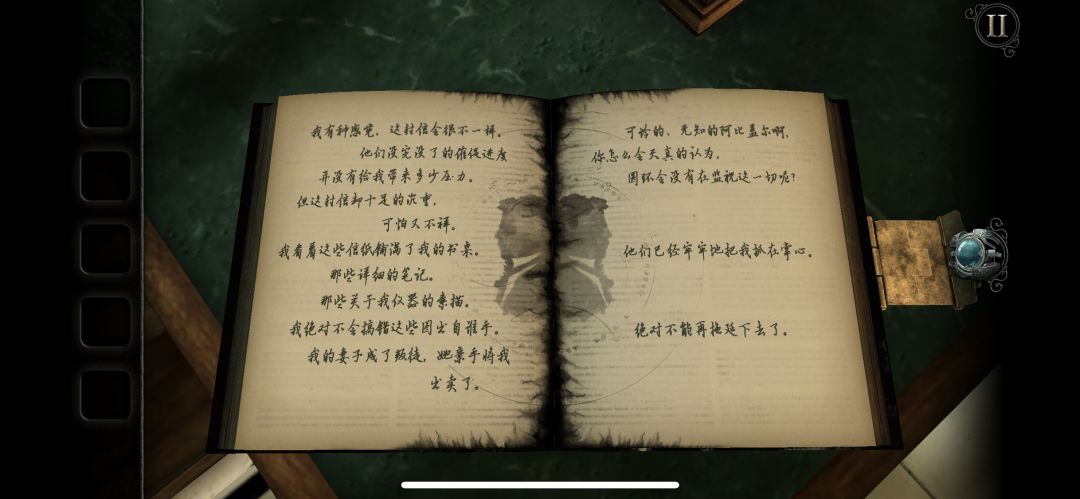 我有种感觉，这封信会很不一样。
他们没完没了的催促进度
并没有给我带来多少压力。
但这封信却十足的沉重，
可怕又不祥。
我看着这些信纸铺满了我的书桌。
那些详细的笔记。
那些关于我仪器的素描。
我绝对不会搞错这些图出自谁手。
我的妻子成了叛徒，她亲手将我
出卖了。
可怜的、无知的阿比盖尔啊，
你怎么会天真的认为，
圆环会没有在监视这一切呢？
他们已经牢牢地把我抓在掌心。
绝对不能再拖延下去了。